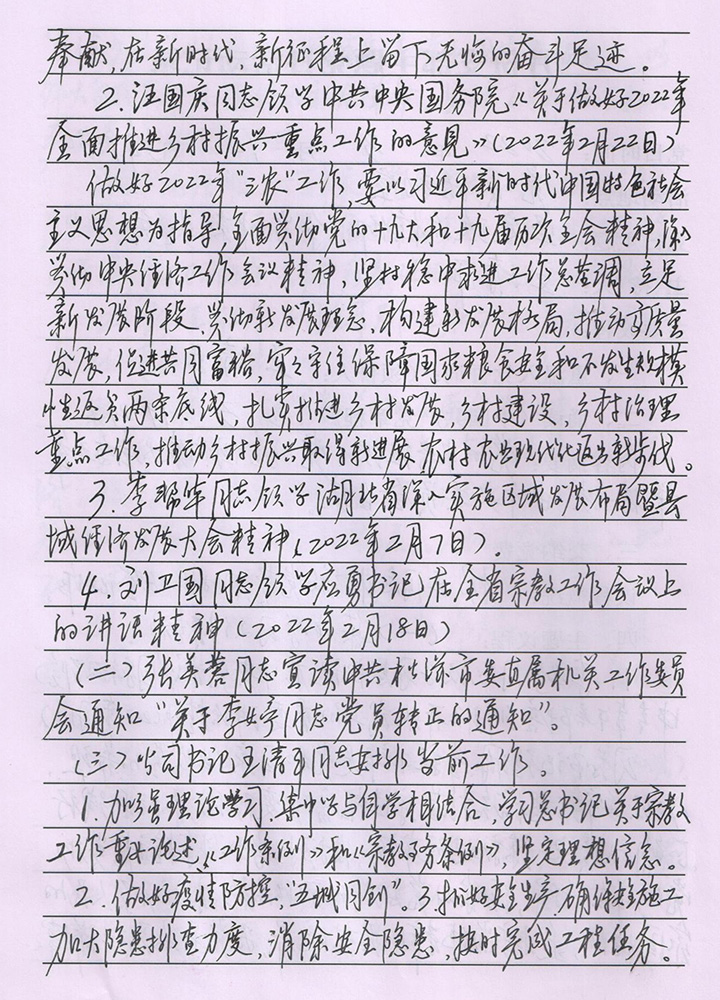 奉献,在新时代,新征程上留下无悔的奋斗足迹。
2.汪国庆同志领学中共中央国务院《关于做好2022年
全面推进乡村振兴重点工作的意见》(2022年2月22日)
做好2022年“三农”工作,要以习近平新时代中国特色社会
主义思想为指导,全面贯彻党的十九大和十九届历次全会精神,深入
贯彻中央经济工作会议精神,坚持稳中求进工作总基调,立足
新发展阶段、贯彻新发展理念、构建新发展格局、推动高质量
发展,促进共同富裕,牢牢守住保障国家粮食安全和不发生规模
性返贫两条底线,扎实推进乡村发展,乡村建设,乡村治理
重点工作,推动乡村振兴取得新进展、农村农业现代化迈出新步伐。
3.李翠华同志领学湖北省深入实施区域发展布局暨县
域经济发展大会精神(2022年2月7日)。
4.刘卫国同志领学应勇书记在全省宗教工作会议上
的讲话精神(2022年2月18日)
(二)张美蓉同志宣读中共松滋市委直属机关工作委员
会通知“关于李婷同志党员转正的通知”。
(三)公司书记王清平同志安排当前工作。
1.加强理论学习,集中学与自学相结合,学习总书记关于宗教
工作重要论述、《工作条例》和《宗教事务条例》,坚定理想信念。
2.做好疫情防控,“五城同创”。3.抓好安全生产,确保安全施工
加大隐患排查力度,消除安全隐患,按时完成工程任务。